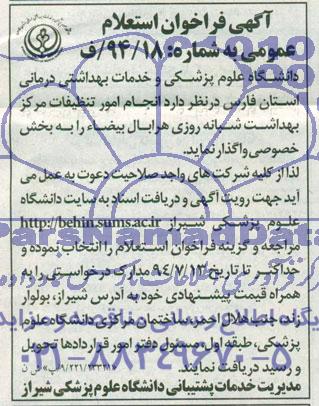 آگهی فراخوان استعلام
عمومی به شماره: ۹۴/۱۸/ف
دانشگاه علوم پزشکی و خدمات بهداشتی درمانی
استان فارس درنظر دارد انجام امور تنظیفات مرکز
بهداشت شبانه روزی هرابال بیضاء را به بخش
خصوصی واگذار نماید.
لذا از کلیه شرکت های واجد صلاحیت دعوت به عمل می
آید جهت رویت آگهی و دریافت اسناد به سایت دانشگاه
علوم پزشکی شیراز http://behin.sums.ac.ir
مراجعه و گزینه فراخوان استعلام را انتخاب نموده و
حداکثر تا تاریخ ۹۴/۷/۱۳ مدارک درخواستی را به
همراه قیمت پیشنهادی خود به آدرس شیراز، بولوار
زند، جنب هلال احمر، ساختمان مرکزی دانشگاه علوم
پزشکی، طبقه اول، مسئول دفتر امور قراردادها تحویل
و رسید دریافت نمایند.
مدیریت خدمات پشتیبانی دانشگاه علوم پزشکی شیراز
۰۲۱-۸۸۳۴۹۶۷۰-۵